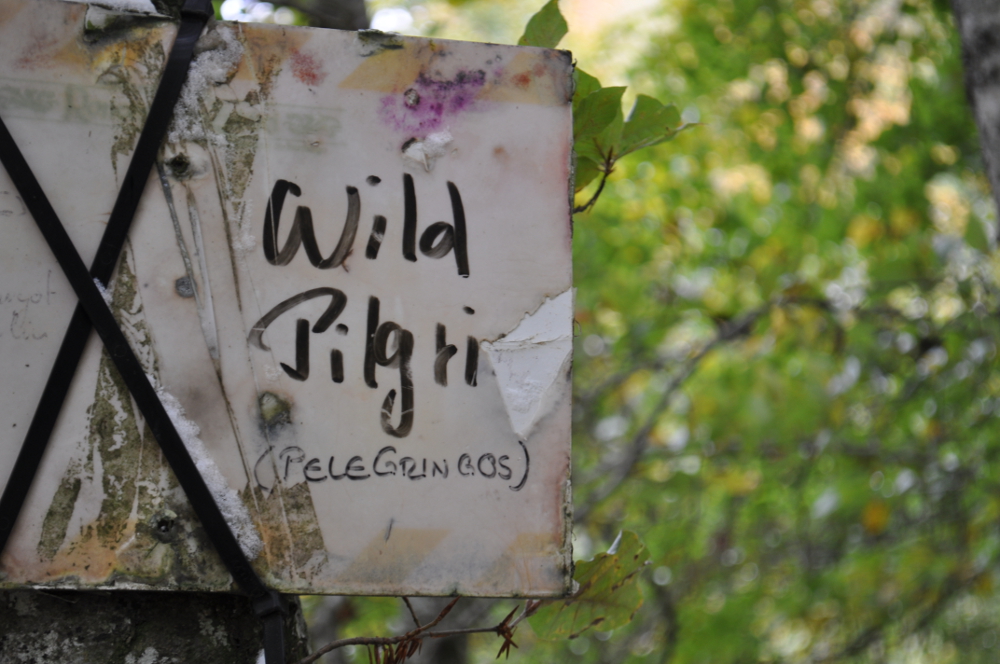 Wild
Pilgri
(PELEGRINGOS)